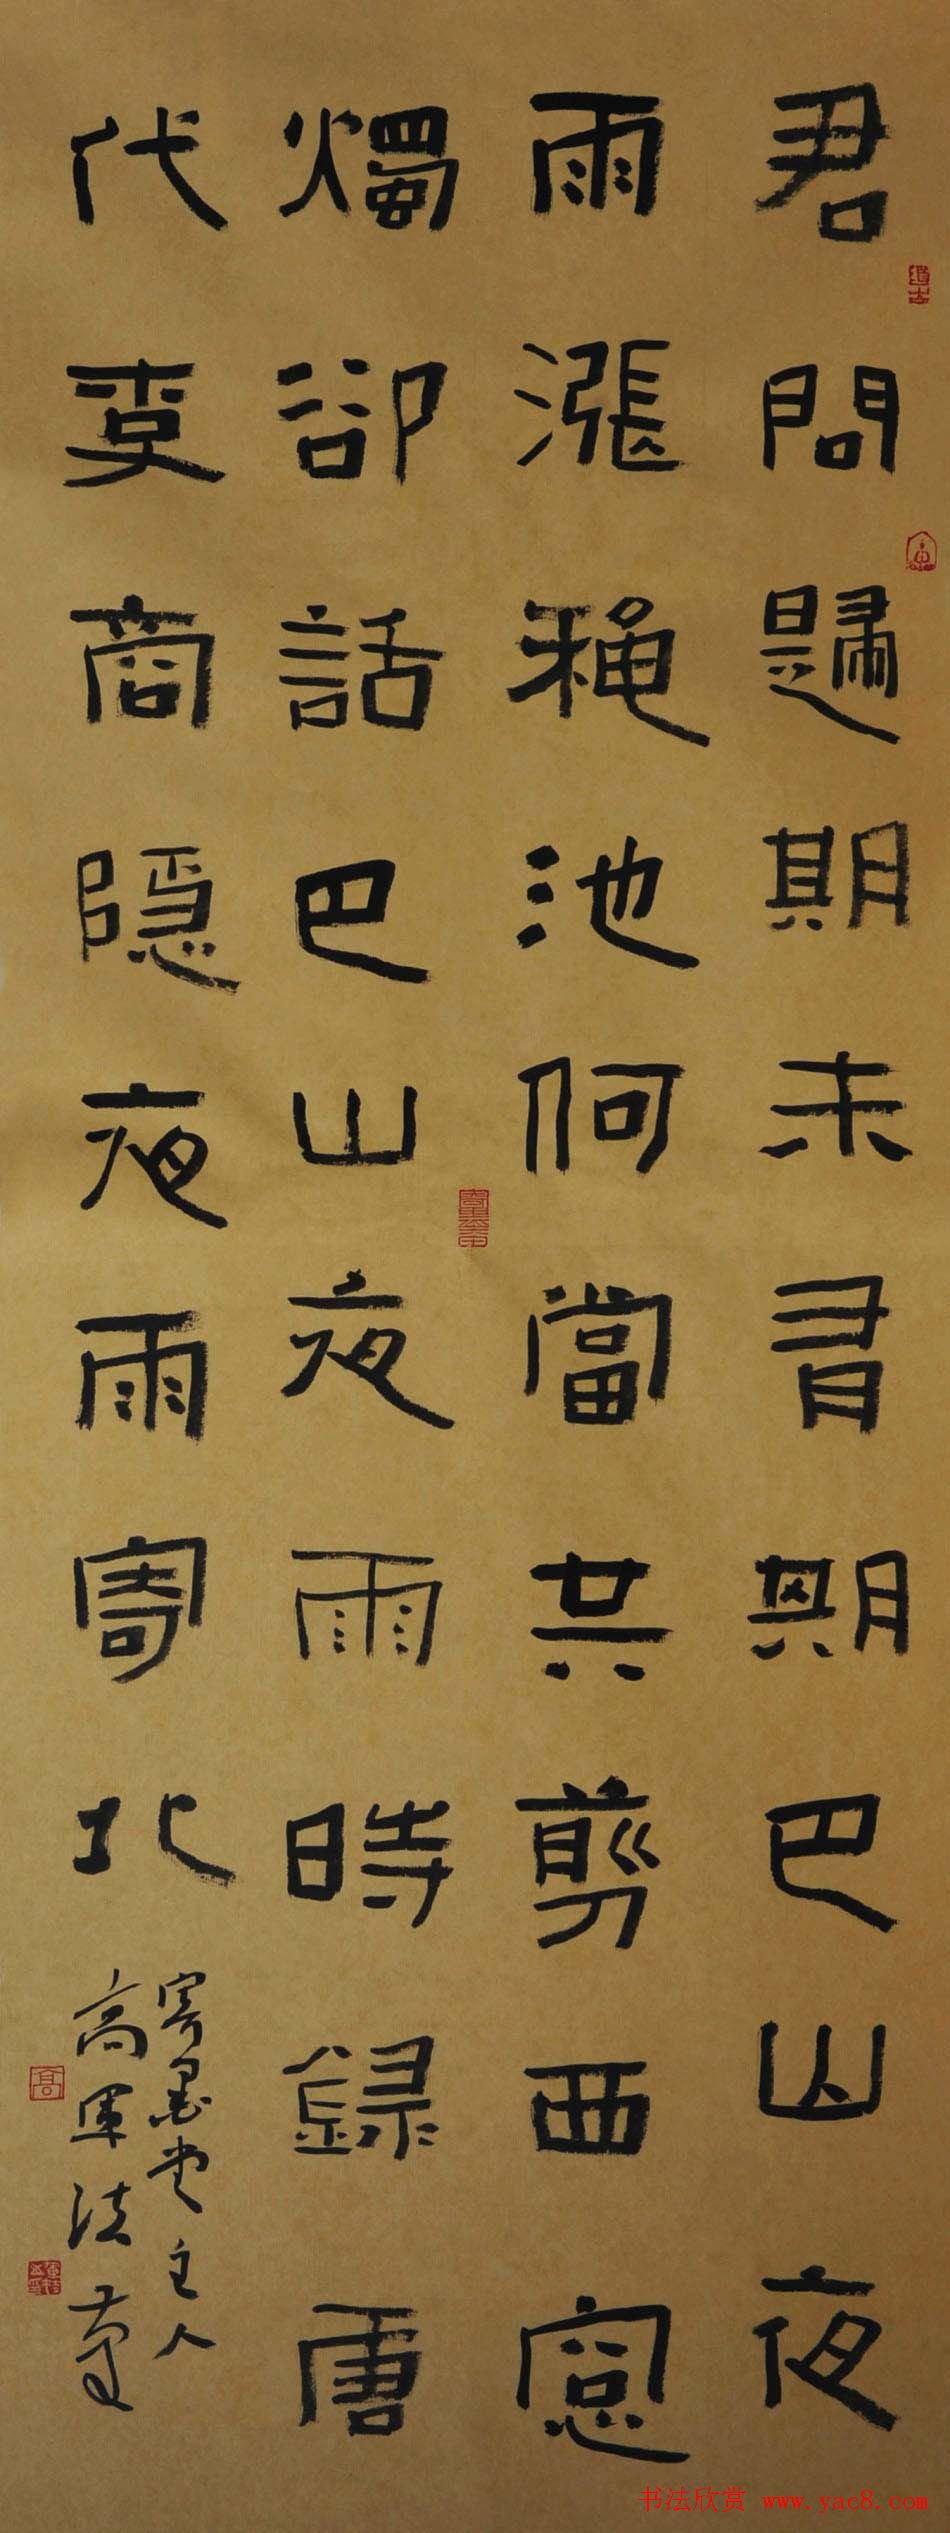 君問歸期未有期巴山夜
雨漲穐池何當共剪西窻
燭卻話巴山夜雨時錄唐
代李商隱夜雨寄北
寄墨堂主人
高軍法
高
书法欣赏 www.yac8.com